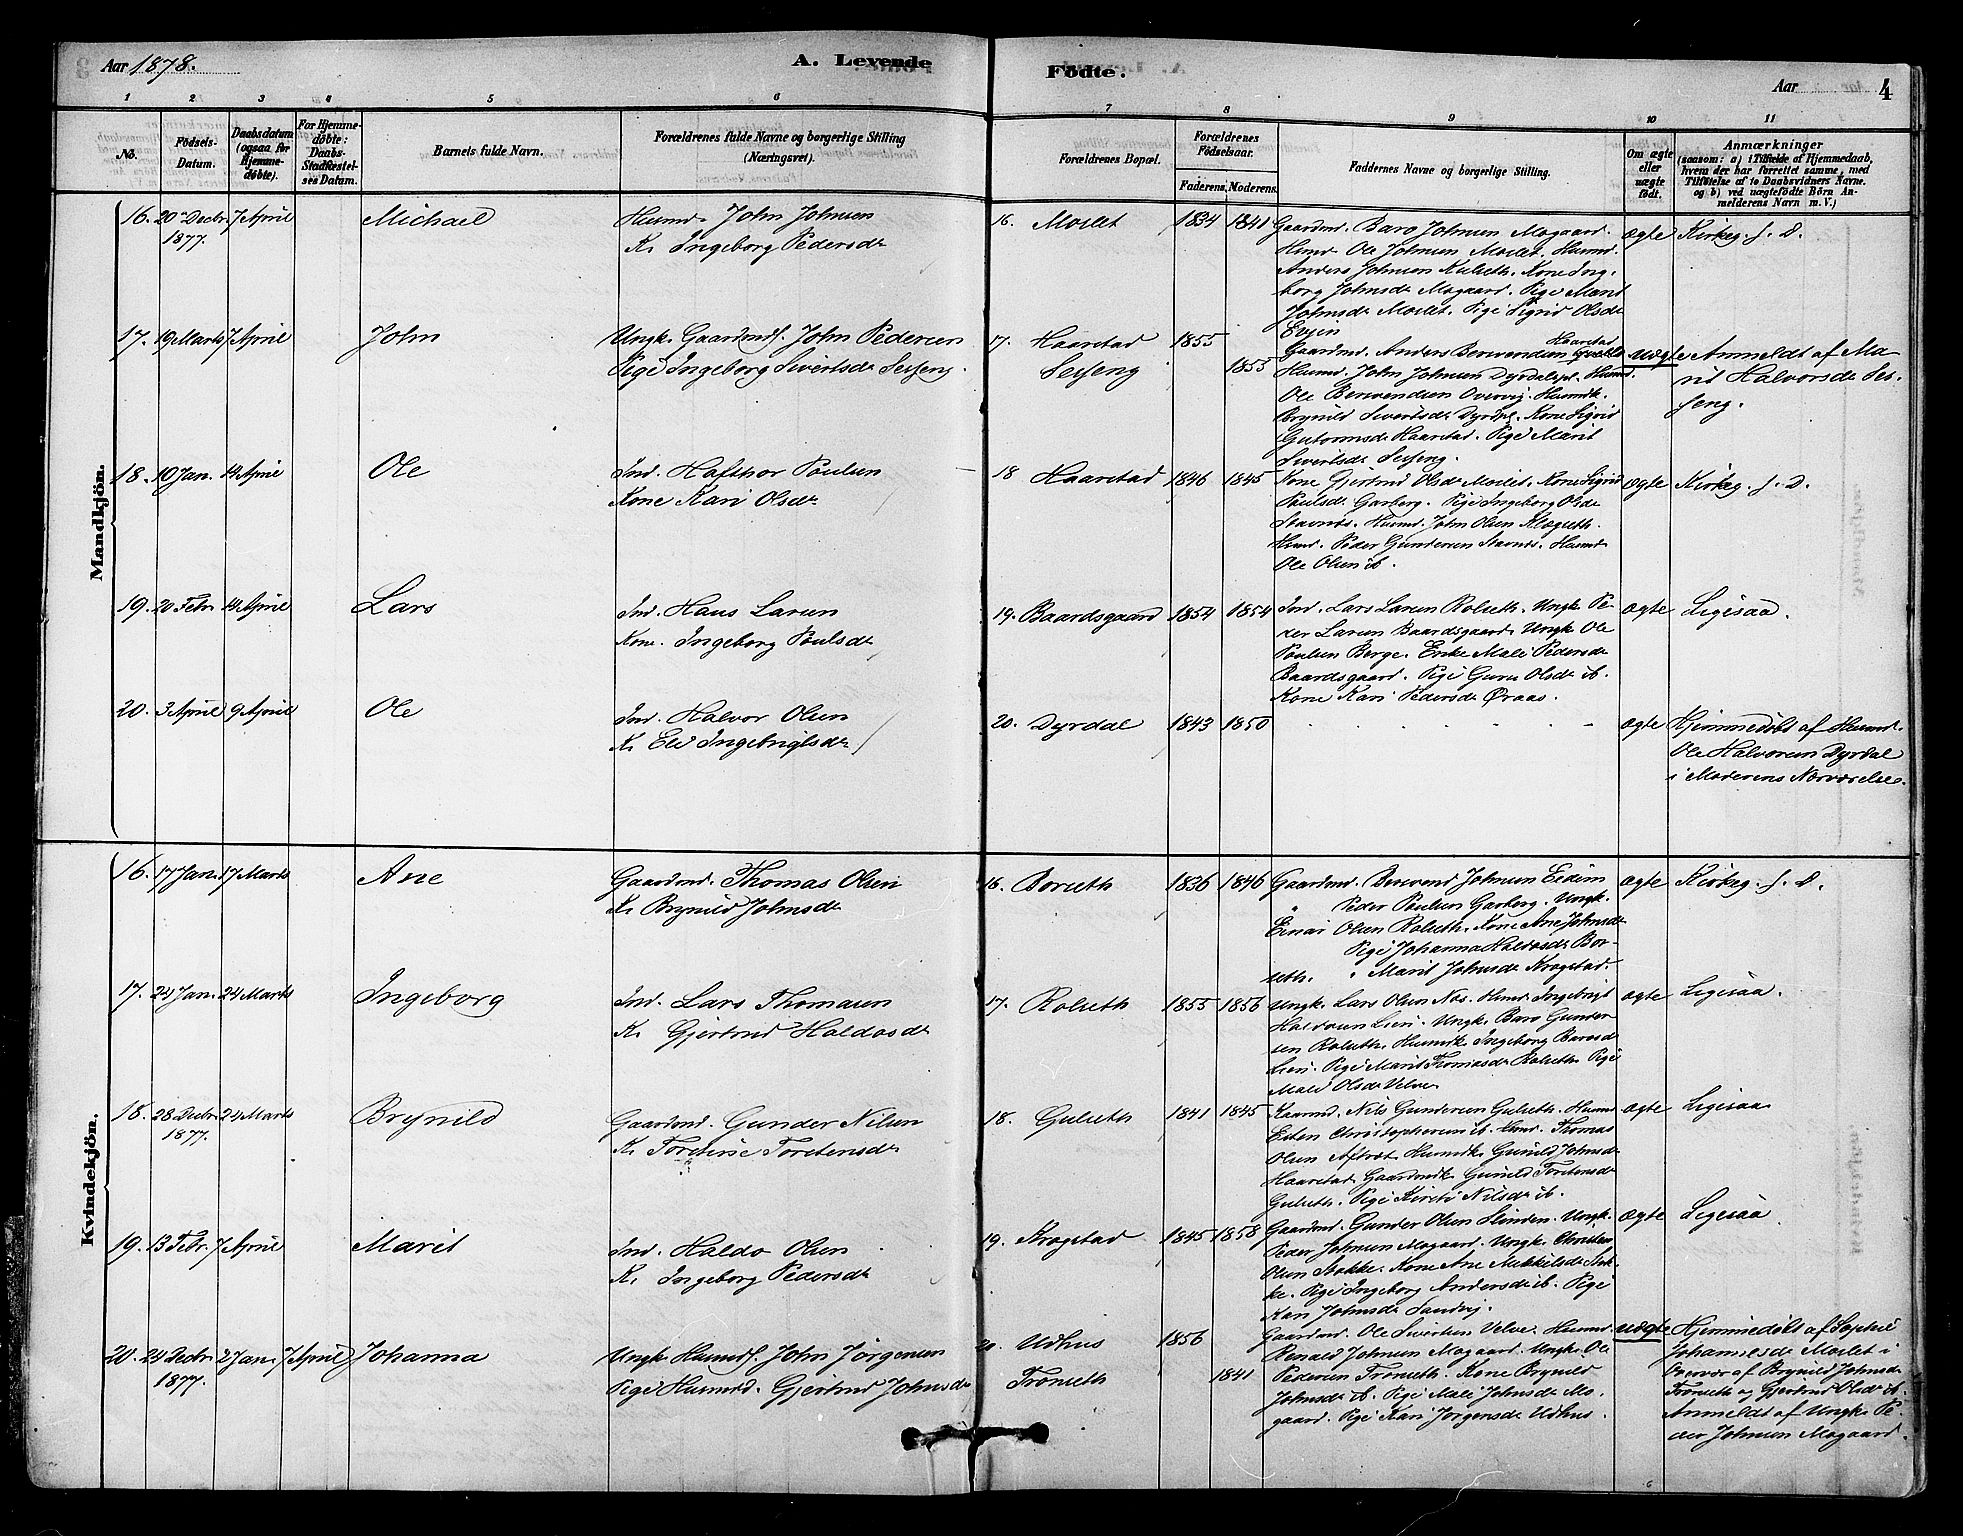 Aar 1878.
A. Levende
Fødte.
Aar
4
1 2 3 4 5 6 7 8 9 10 11
No.
Fødsels-
Datum.
Daabsdatum
(ogsaa for
Hjemme-
døbte).
For Hjemme-
døbte:
Daabs-
Stadfæstel-
ses Datum.
Barnets fulde Navn.
Forældrenes fulde Navne og borgerlige Stilling
(Næringsvei).
Forældrenes Bopæl.
Forældrenes
Fødselsaar.
Faderens. Moderens.
Faddernes Navne og borgerlige Stilling.
Om ægte
eller
uægte
født.
Anmærkninger
(saasom: a) i Tilfælde af Hjemmedaab,
hvem der har forrettet samme, med
Tilføielse af to Daabsvidners Navne.
og b) ved uægtefødte Børn An-
melderens Navn m. V.)
Mandkjön.
16. 20 Decbr 7 April Michael
1877.
Husmd. John Johnsen
K. Ingeborg Pedersdr
16. Moslet 1834 1841
Gaardmd. Baro Johnsen Mogaard.
Hsmd Ole Johnsen Moslet. Husmd.
Anders Johnsen Kulseth. Kone Inge-
borg Johnsdr Mogaard. Pige Marit
Johnsdr Moslet. Pige Sigrid Olsdr
Evjen
ægte Kirkeg. f. D.
17. 19 Marts 7 April John
Ungk. Gaardmds. John Pedersen
Pige Ingeborg Sivertsdr Sesseng.
17. Haarstad 1855
Sesseng 1855
Haarstad
Gaardmd. Anders Berwendsen
Husmd. John Johnsen Dyrdalspl. Husmd.
Ole Berwendsen Overvig. Husmdk.
Brynild Sivertsdr Dyrdpl. Kone Sigrid
Guttormsdr Haarstad. Pige Marit
Sivertsdr Sesseng.
uægte Anmeldt af Ma-
rit Halvorsdr Ses-
seng.
18. 10 Jan. 14 April Ole
Ind. Hafthor Poulsen
Kone Kari Olsdr
18 Haarstad 1846 1845
Kone Gjertrud Olsdr Moslet. Kone Sigrid
Poulsdr Garberg. Pige Ingeborg Olsdr
Stavnes. Husmd. John Olsen Klogseth.
Hsmd. Peder Gundersen Stavnes. Husmd
Ole Olsen ib.
ægte Kirkeg. f. D.
19. 20 Febr 14 April Lars
Ind. Hans Larsen
Kone. Ingeborg Poulsdr
19. Baardsgaard 1854 1854
Ind. Lars Larsen Rolseth. Ungk Pe-
der Larsen Baardsgaard. Ungk Ole
Poulsen Berge. Enke Mali Pedersdr
Baardsgaard. Pige Guru Olsdr ib.
Kone Kari Pedersdr Øraas.
ægte Ligesaa.
20. 3 April 9 April Ole
Ind. Halvor Olsen
K. Eli Ingebrigtsdr
20. Dyrdal 1843 1850
ægte Hjemmedøbt af Husmd.
Ole Halvorsen Dyrdal
i Moderens Nærværelse.
Kvindekjön.
16. 17 Jan. 17 Marts Ane
Gaardmd. Thomas Olsen
K. Brynild Johnsdr
16. Borseth 1836 1846
Gaardmd. Berwend Johnsen Eidem
" Peder Poulsen Garberg. Ungk.
Einar Olsen Rolseth. Kone Ane Johnsdr
Pige Johanna Haldosdr Bor-
seth. " Marit Johnsdr Krogstad.
ægte Kirkeg. f. D.
17. 24 Jan. 24 Marts Ingeborg
Ind. Lars Thomasen
K. Gjertrud Haldosdr
17. Rolseth 1855 1856
Ungk. Lars Olsen Næs. Hsmd Ingebrigt
Haldosen Lien. Ungk. Baro Gunder-
sen Rolseth. Husmdk Ingeborg Barosdr
Lien. Pige Marit Thomasdr Rolseth. Pige
Mali Olsdr Velve
ægte Ligesaa.
18. 28 Decbr. 24 Marts Brynild
1877.
Gaardmd. Gunder Nilsen
K. Torstine Torstensdr
18. Gulseth 1841 1845
Gaardmd. Nils Gundersen Gulseth. Husmd
Esten Christophersen ib. Hsmd. Thomas
Olsen Aftret. Husmdk. Gunild Johnsdr
Haarstad. Gaardmdk. Gunild Torstensdr
Gulseth. Pige Kirsti Nilsdr ib.
ægte Ligesaa
19. 13 Febr. 7 April Marit
Ind. Haldo Olsen
K. Ingeborg Pedersdr
19. Krogstad 1845 1858
Gaardmd. Gunder Olsen Slinden. Ungk.
Peder Johnsen Mogaard. Ungk. Christen
Olsen Stokke. Kone Ane Mikkelsdr Stok-
ke. Pige Ingeborg Andersdr ib. Pige
Kari Johnsdr Sandvig.
ægte Ligesaa
20. 24 Decbr. 2 Jan. 7 April Johanna
1877.
Ungk Husmds. John Jørgensen
Pige Husmd. Gjertrud Johnsdr
20. Udhus 1856
Tronseth 1841
Gaardmd. Ole Sivertsen Velve. Husmd
Renald Johnsen Mogaard. Ungk. Ole
Pedersen Tronseth. Kone Brynild
Johnsdr ib. Pige Mali Johnsdr Mo-
gaard. Pige Kari Jørgensdr Udhus.
uægte Hjemmedøbt af Sophie
Johannesdr Moslet i
Overvær af Brynild Johnsdr
Tronseth og Gjertrud Olsdr ib.
Anmeldt af Ungk. Pe-
der Johnsen Mogaard.